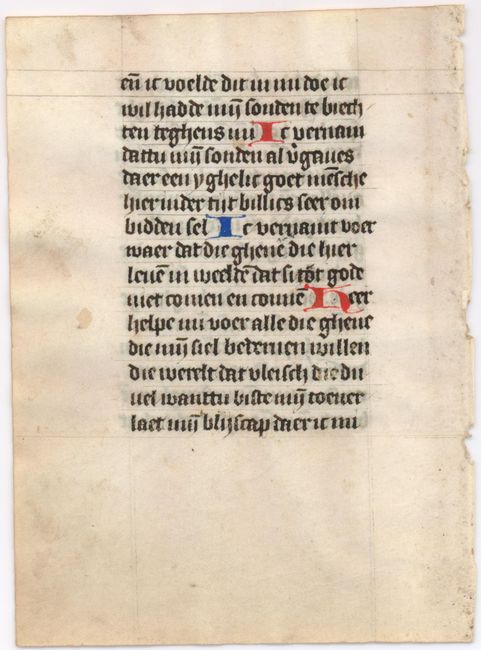 en̄ ic voelde dit in mi doe ic
wil hadde mijn sonden te biech
ten teghens mi Ic vernam
dattu mijn sonden al v̄gaues
daer een yghelic goet mēsche
hier in der tijt billics seer om
bidden sel Ic vernamt voer
waer dat die ghene die hier
leuē in weeldē dat si tot gode
niet comen en connē Heer
helpe mi voer alle die ghene
die mijn siel bederuen willen
die werelt dat vleisch die du
uel wanttu biste mijn toeuer
laet mijn blijscap daer ic mi